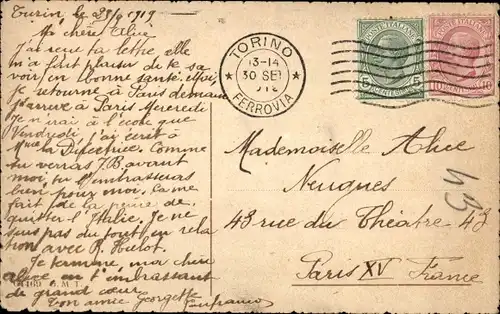 Turin, le 29/9 1919
Ma chère Alice
J'ai reçu ta lettre, elle
m'a fait plaisir de te sa
voir en bonne santé. Moi,
je retourne à Paris demain
J'arrive à Paris Mercredi
Je n'irai à l'école que
Vendredi. J'ai écrit à
Mme la Directrice. Comme
tu verras J.B. avant
moi, tu l'embrasseras
bien pour moi, ça me
fait de la peine de
quitter l'Italie. Je ne
suis pas du tout en rela
tion avec R. Hulot.
Je termine, ma chère
alice en t'embrassant
de grand cœur
Ton amie Georgette
69 G.M.T.
TORINO
13-14
30 SET
FERROVIA
POSTE ITALIANE
5 CENTESIMI 5
POSTE ITALIANE
10 CENTESIMI 10
Mademoiselle Alice
43 rue du Théatre 43
Paris XV France
43